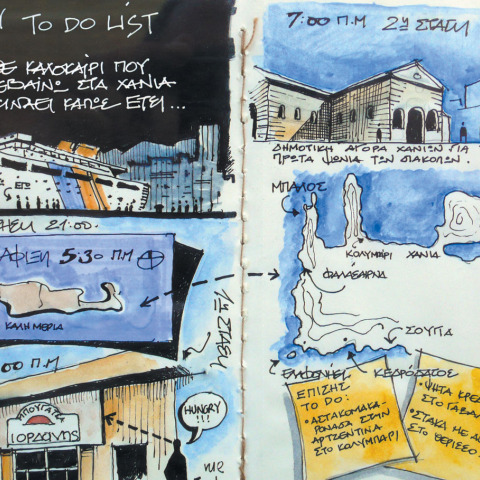 TO DO LIST
ΚΑΛΟΚΑΙΡΙ ΠΟΥ
ΣΤΑ ΧΑΝΙΑ
ΚΑΠΩΣ ΕΤΣΙ...
21:00.
ΑΦΙΞΗ 5:30 Π.Μ
ΚΑΛΗΜΕΡΙΑ
1η ΣΤΑΣΗ
00 Π.Μ
ΜΠΟΥΓΑΤΣΑ
ΙΟΡΔΑΝΗΣ
HUNGRY
!!!
7:00 Π.Μ 2η ΣΤΑΣΗ
ΔΗΜΟΤΙΚΗ ΑΓΟΡΑ ΧΑΝΙΩΝ ΓΙΑ
ΠΡΩΤΑ ΨΩΝΙΑ ΤΩΝ ΔΙΑΚΟΠΩΝ.
ΜΠΑΛΟΣ
ΚΟΛΥΜΠΑΡΙ ΧΑΝΙΑ
ΦΑΛΑΣΑΡΝΑ
ΣΟΥΓΙΑ
ΕΛΑΦΟΝΗΣΙ ΚΕΔΡΟΔΑΣΟΣ
ΕΠΙΣΗΣ
TO DO:
•ΑΣΤΑΚΟΜΑΚΑ-
ΡΟΝΑΔΑ ΣΤΗΝ
ΑΡΤΖΕΝΤΙΝΑ
ΣΤΟ ΚΟΛΥΜΠΑΡΙ
•ΨΗΤΑ ΚΡΕ
ΣΤΟ ΓΑΒΑΛ
•ΣΤΑΚΑ ΜΕ Α
ΣΤΟ ΘΕΡΙΣΣΟ!